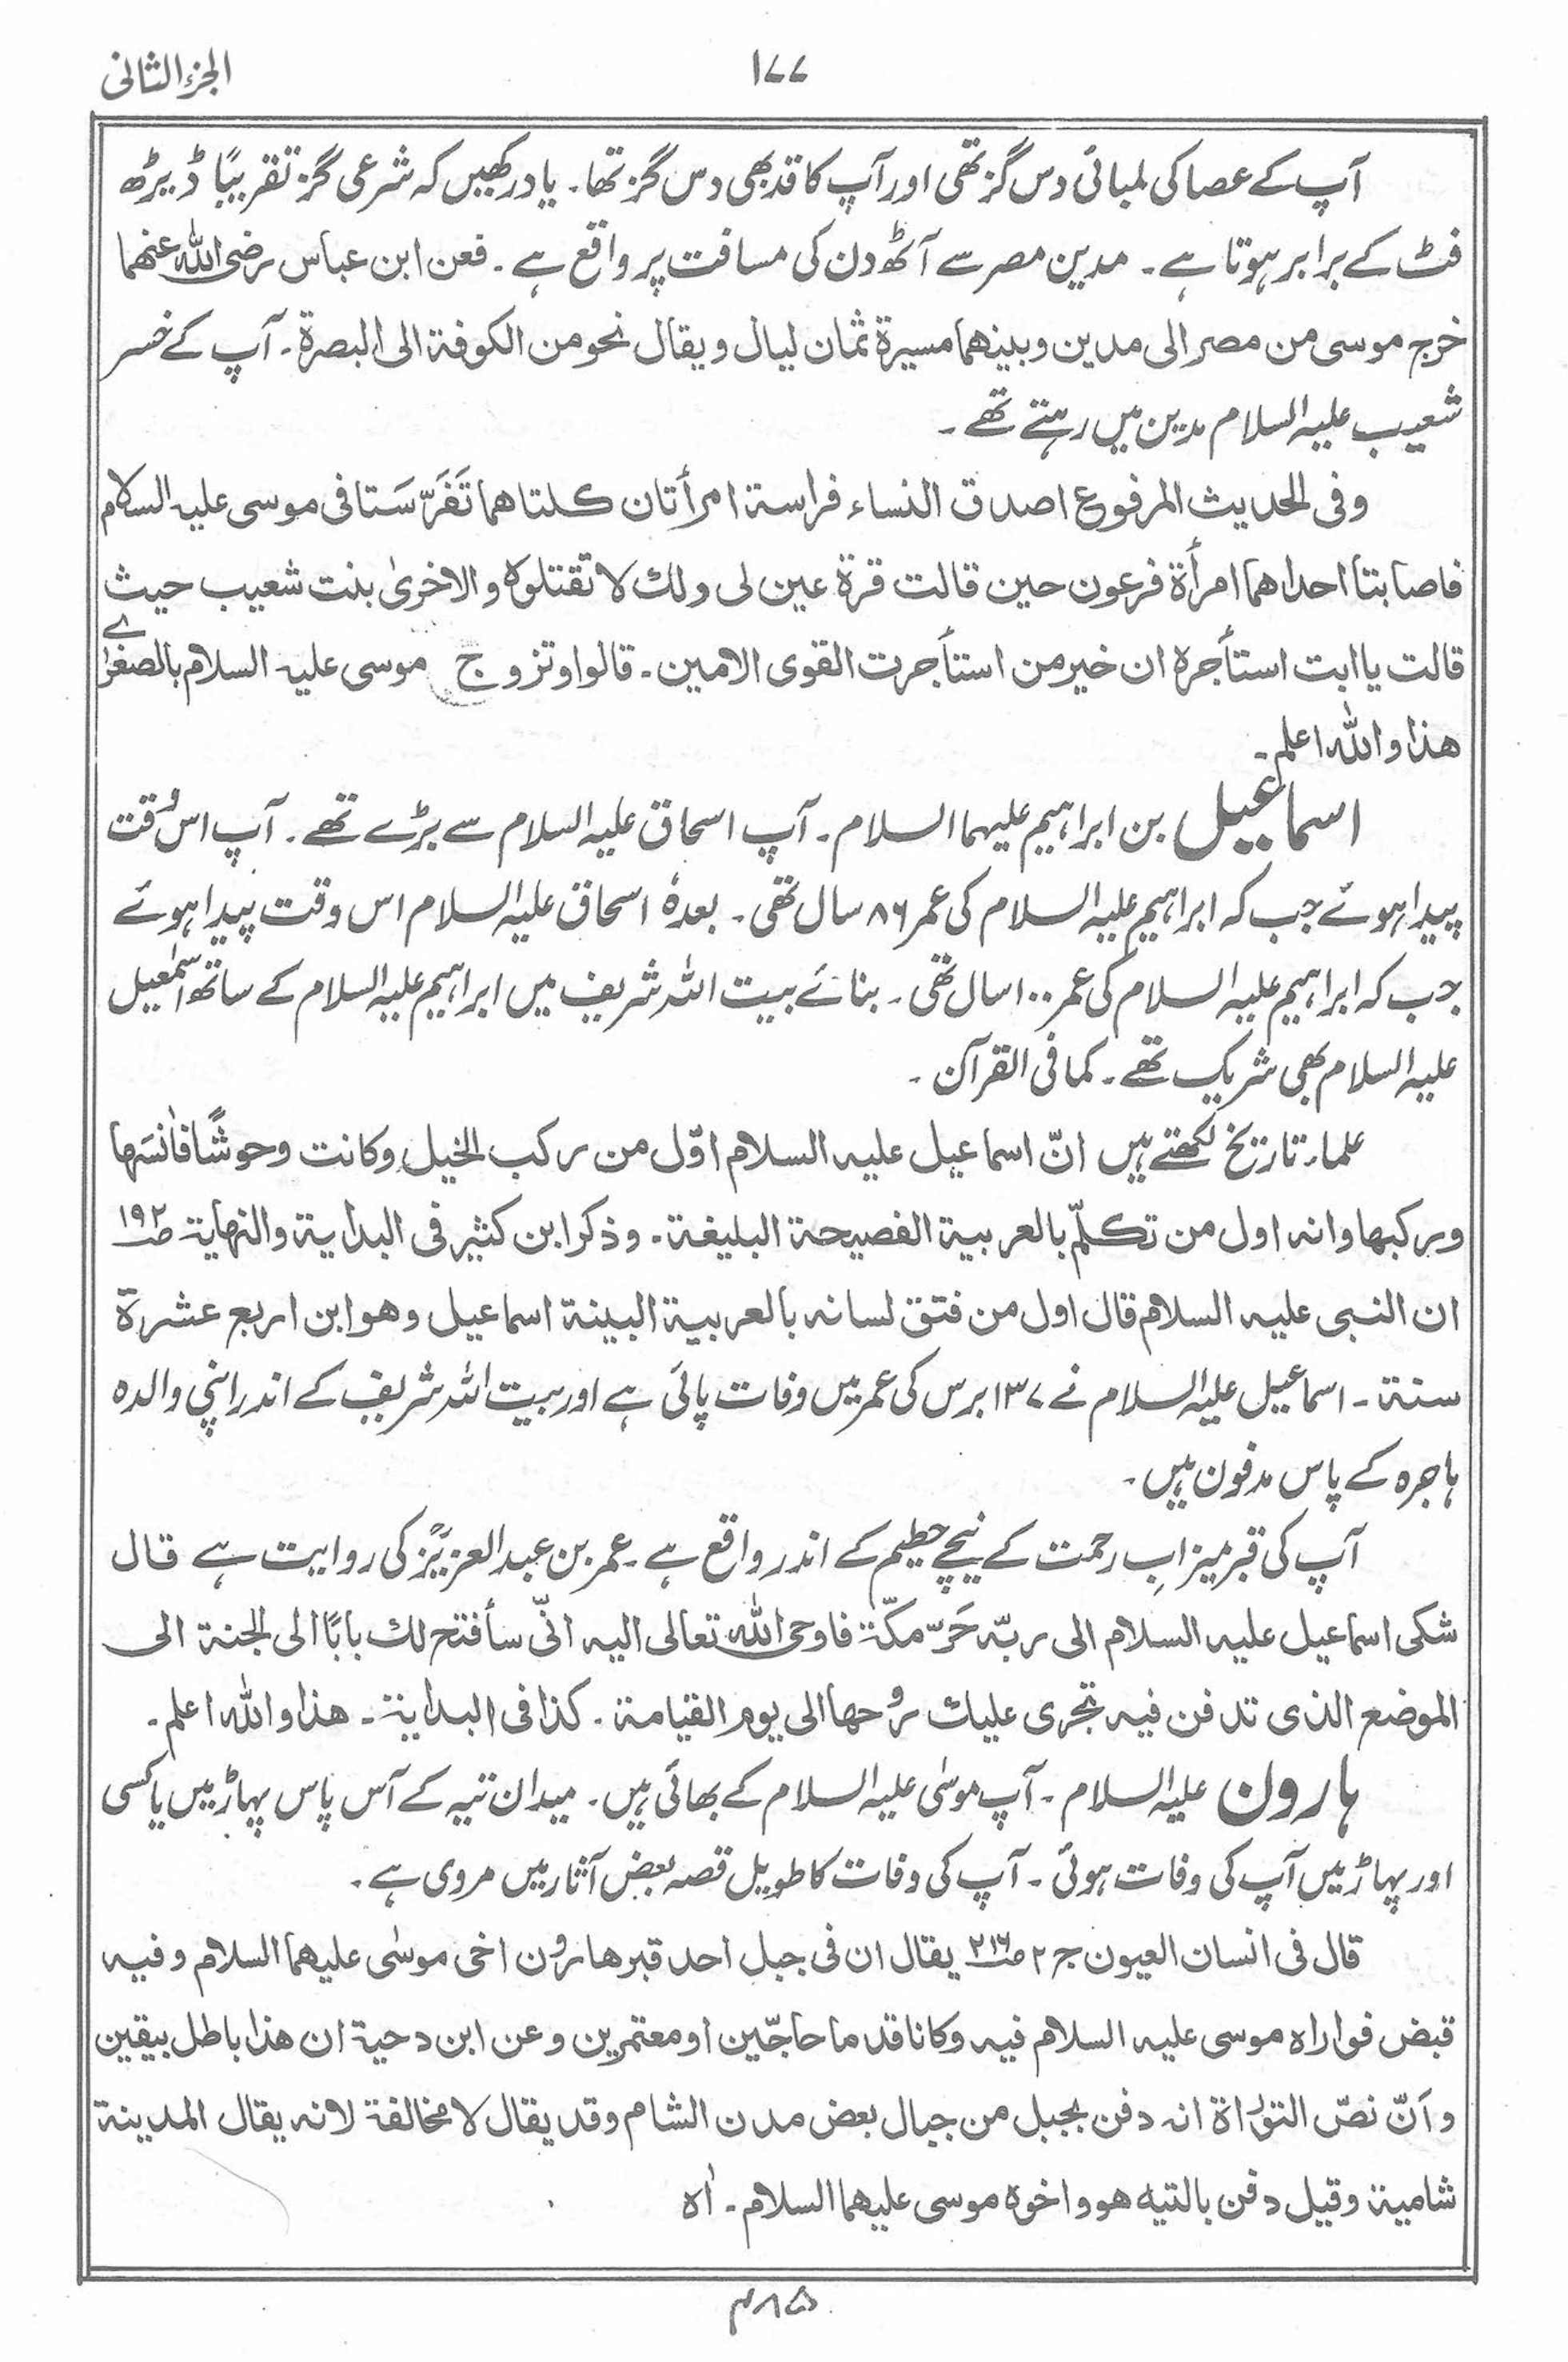 الجزء الثانی
۱۷۷
آپ کے عصا کی لمبائی دس گز تھی اور آپ کا قد بھی دس گز تھا۔ یاد رکھیں کہ شرعی گز تقریبًا ڈیڑھ
فٹ کے برابر ہوتا ہے۔ مدین مصر سے آٹھ دن کی مسافت پر واقع ہے۔ فعن ابن عباس رضی اللہ عنہما
خرج موسی من مصر الی مدین وبینهما مسیرۃ ثمان لیال ویقال نحو من الکوفۃ الی البصرۃ۔ آپ کے خسر
شعیب علیہ السلام مدین میں رہتے تھے۔
وفی الحدیث المرفوع اصدق النساء فراسۃ امرأتان کلتاهما تَفَرَّسَتا فی موسی علیہ السلام
فاصابتا احداهما امرأۃ فرعون حین قالت قرۃ عین لی ولك لا تقتلوہ والاخریٰ بنت شعیب حیث
قالت یا ابت استأجرہ ان خیر من استأجرت القوی الامین۔ قالوا وتزوج موسی علیہ السلام بالصغرٰے
هذا والله اعلم۔
اسماعیل بن ابراہیم علیہما السلام۔ آپ اسحاق علیہ السلام سے بڑے تھے۔ آپ اس وقت
پیدا ہوئے جب کہ ابراہیم علیہ السلام کی عمر ۸۶ سال تھی۔ بعدہٗ اسحاق علیہ السلام اس وقت پیدا ہوئے
جب کہ ابراہیم علیہ السلام کی عمر ۱۰۰ سال تھی۔ بنائے بیت اللہ شریف میں ابراہیم علیہ السلام کے ساتھ اسمٰعیل
علیہ السلام بھی شریک تھے۔ کما فی القرآن۔
علماء تاریخ لکھتے ہیں انّ اسماعیل علیہ السلام اوّل من رکب الخیل وکانت وحوشًا فاٰنسَها
ورکبها وانہ اول من تکلّم بالعربیۃ الفصیحۃ البلیغۃ۔ وذکر ابن کثیر فی البدایۃ والنهایۃ ص۱۹۲
ان النبی علیہ السلام قال اول من فتق لسانہ بالعربیۃ البینۃ اسماعیل وهو ابن اربع عشرۃ
سنۃ۔ اسماعیل علیہ السلام نے ۱۳۷ برس کی عمر میں وفات پائی ہے اور بیت اللہ شریف کے اندر اپنی والدہ
ہاجرہ کے پاس مدفون ہیں۔
آپ کی قبر میزابِ رحمت کے نیچے حطیم کے اندر واقع ہے۔ عمر بن عبد العزیزؒ کی روایت ہے قال
شکی اسماعیل علیہ السلام الی ربّہ حَرَّ مکّۃ فاوحی الله تعالی الیہ انّی سأفتح لك بابًا الی الجنۃ الی
الموضع الذی تدفن فیہ تجری علیك روحها الی یوم القیامۃ۔ کذا فی البدایۃ۔ هذا والله اعلم۔
ہارون علیہ السلام۔ آپ موسٰی علیہ السلام کے بھائی ہیں۔ میدان تیہ کے آس پاس پہاڑ میں یا کسی
اور پہاڑ میں آپ کی وفات ہوئی۔ آپ کی وفات کا طویل قصہ بعض آثار میں مروی ہے۔
قال فی انسان العیون ج۲ ص۲۱۶ یقال ان فی جبل احد قبر هارون اخی موسٰی علیهما السلام وفیہ
قبض فواراہ موسی علیہ السلام فیہ وکانا قدما حاجّین او معتمرین وعن ابن دحیۃ ان هذا باطل بیقین
وأنّ نصّ التوراۃ انہ دفن بجبل من جبال بعض مدن الشام وقد یقال لا مخالفۃ لانہ یقال المدینۃ
شامیۃ وقیل دفن بالتیه هو واخوہ موسی علیهما السلام۔ اٰہ
۴۸۵